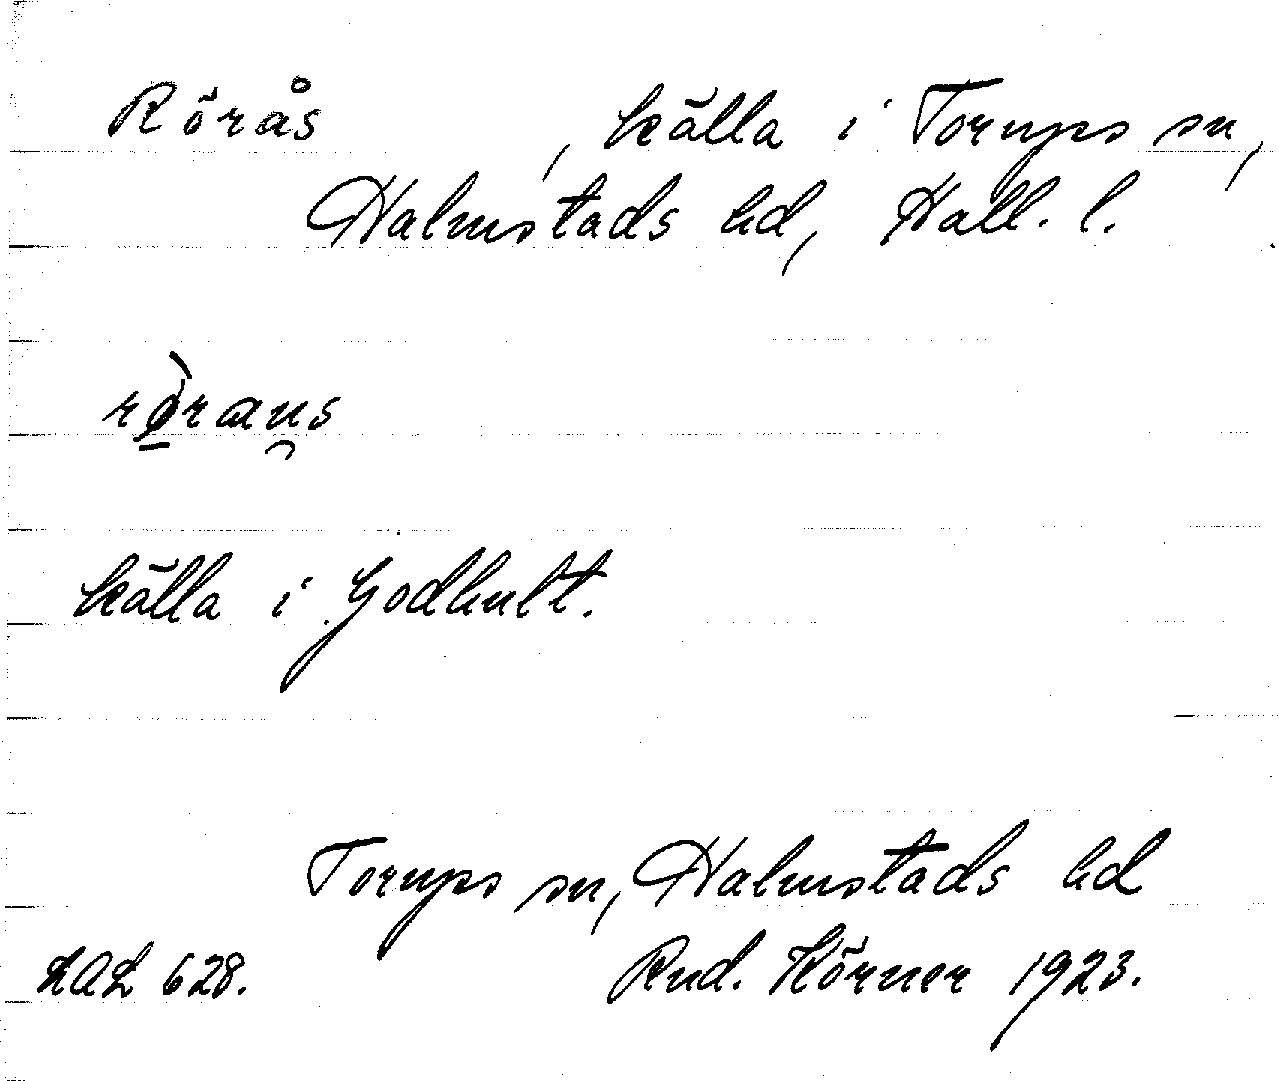 Rörås, källa i Torups sn,
Halmstads hd, Hall. l.
rø̱̀rau̯s
källa i Godhult.
Torups sn, Halmstads hd
LAL 628. Rud. Körner 1923.